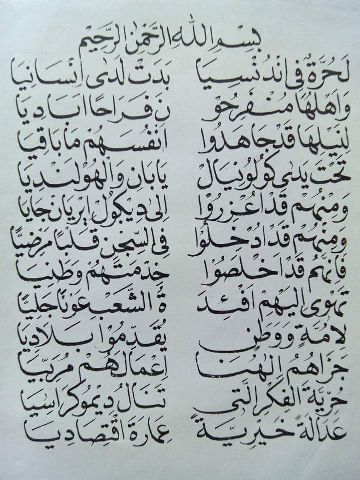 بسم الله الرحمن الرحيم
لحرة في اندنسيا بدت لدى انسانيا
واهلها منفرحو ن فراحا اباديا
لنيلها قد جاهدوا انفسهم ماباقيا
تحت يدى كولونيال يابان والهولنديا
ومنهم قد اعزروا الى ديكول ابريان جايا
ومنهم قد ادخلوا في السجن قلبا مرضيا
فانهم قد اخلصوا خدمتهم وطنيا
تهوى اليهم افئد ة الشعب عونا جليا
لامة ووطن يقدموا بلاديا
جزاهم الهنا اعمالهم مربيا
حرية الفكر التي تنال ديموكراسيا
عدالة خيرية عمارة اقتصاديا